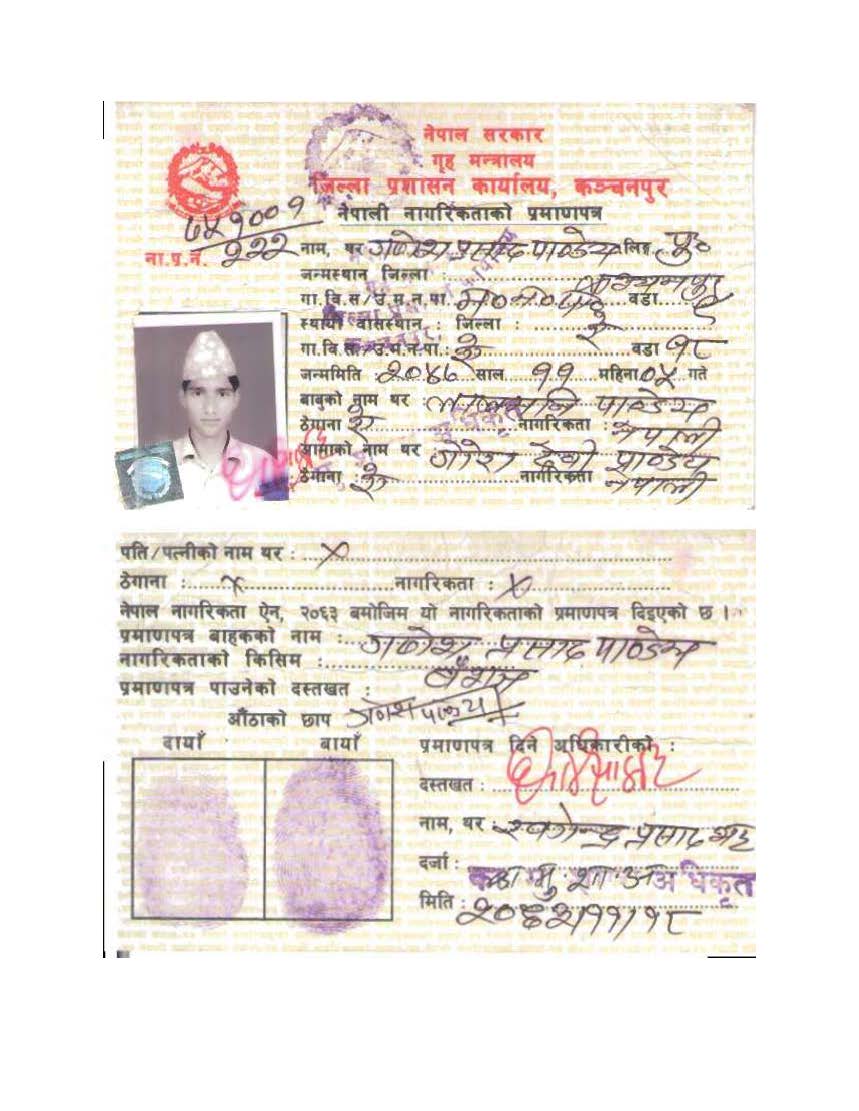 नेपाल सरकार
गृह मन्त्रालय
जिल्ला प्रशासन कार्यालय, कञ्चनपुर
नेपाली नागरिकताको प्रमाणपत्र
ना.प्र.नं. २२२
नाम, थर गणेश प्रसाद पाण्डेय लिङ्ग पु०
जन्मस्थान जिल्ला : कञ्चनपुर
गा.वि.स/उ.म.न.पा. वडा
स्थायी वासस्थान : जिल्ला : ऐ
गा.वि.स./उ.म.न.पा.: ऐ वडा १८
जन्ममिति : २०४७ साल ११ महिना ०५ गते
बाबुको नाम थर : पाण्डेय
ठेगाना ऐ नागरिकता : नेपाली
आमाको नाम थर देवी पाण्डेय
ठेगाना : ऐ नागरिकता नेपाली
पति/पत्नीको नाम थर : x
ठेगाना : x नागरिकता : x
नेपाल नागरिकता ऐन, २०६३ बमोजिम यो नागरिकताको प्रमाणपत्र दिइएको छ ।
प्रमाणपत्र बाहकको नाम : गणेश प्रसाद पाण्डेय
नागरिकताको किसिम : वंशज
प्रमाणपत्र पाउनेको दस्तखत :
औंठाको छाप
दायाँ बायाँ
प्रमाणपत्र दिने अधिकारीको :
दस्तखत :
नाम, थर : प्रसाद भट्ट
दर्जा : अधिकृत
मिति :